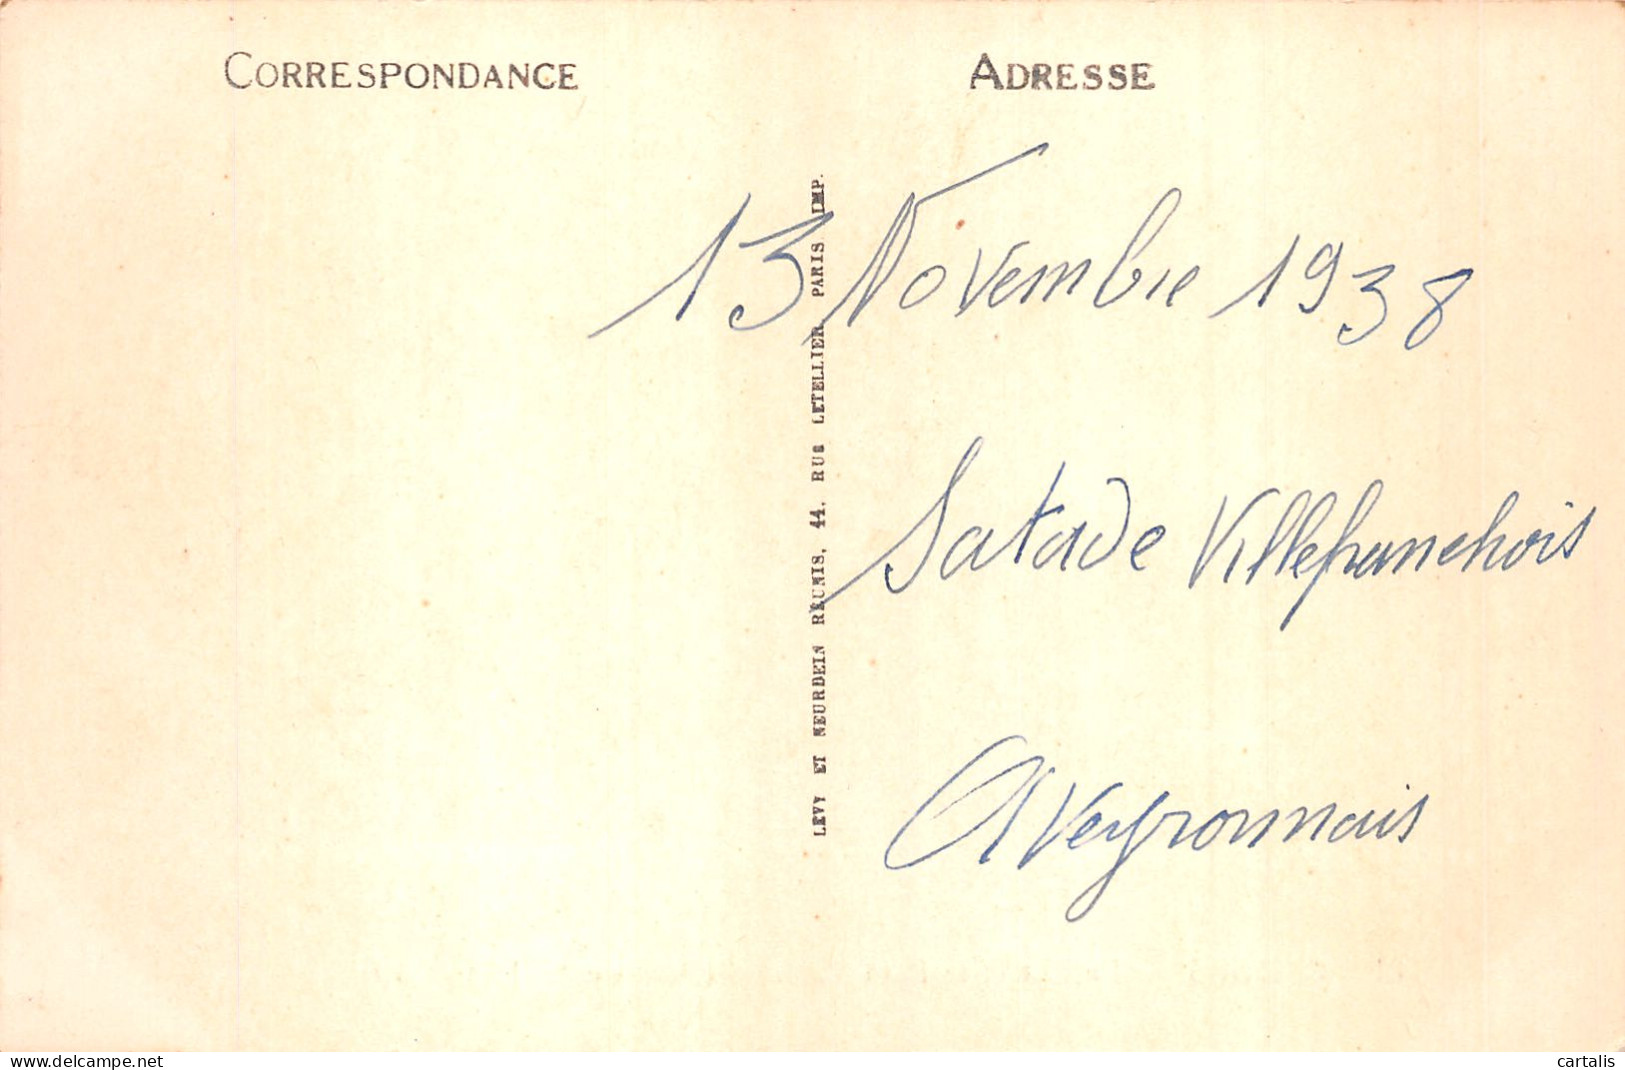 CORRESPONDANCE
ADRESSE
13 Novembre 1938
Satade Villefranchois
Aveyronnais
LEVY ET NEURDEIN REUNIS, 44, RUE LETELLIER, PARIS IMP.
www.delcampe.net
cartalis